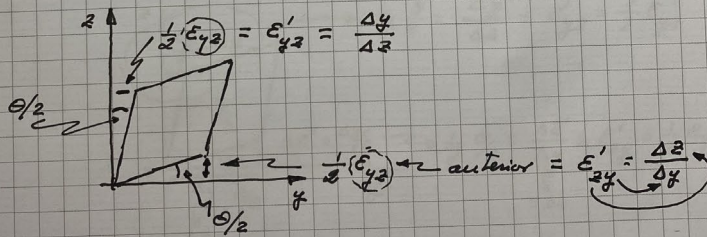 z
½ ε_yz = ε'_yz = Δy/Δz
θ/2
½ ε_yz ← anterior = ε'_zy = Δz/Δy
y
θ/2